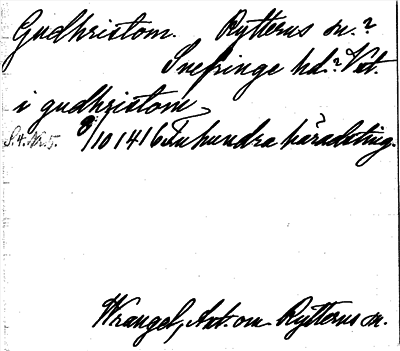 Gudhristom. Rytterns sn.?
Snefringe hd? Vstl.
i gudhristom
S.4. N.5. 8/10 1416 Tuhundra häradsting.
Wrangel, Ant. om Rytterns sn.